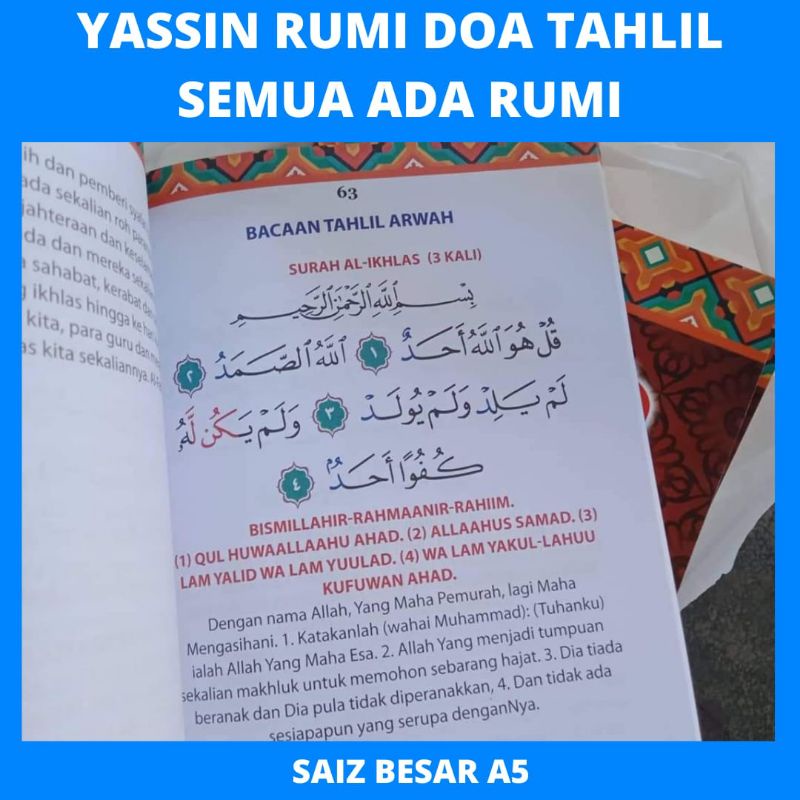 YASSIN RUMI DOA TAHLIL
SEMUA ADA RUMI
ih dan pemberi
ada sekalian roh para
jahteraan dan
da dan mereka
sahabat, kerabat
ikhlas hingga ke
kita, para guru dan
as kita sekaliannya.
63
BACAAN TAHLIL ARWAH
SURAH AL-IKHLAS (3 KALI)
بِسْمِ اللَّهِ الرَّحْمَٰنِ الرَّحِيمِ
قُلْ هُوَ اللَّهُ أَحَدٌ ١ اللَّهُ الصَّمَدُ ٢
لَمْ يَلِدْ وَلَمْ يُولَدْ ٣ وَلَمْ يَكُن لَّهُ
كُفُوًا أَحَدٌ ٤
BISMILLAHIR-RAHMAANIR-RAHIIM.
(1) QUL HUWAALLAAHU AHAD. (2) ALLAAHUS SAMAD. (3)
LAM YALID WA LAM YUULAD. (4) WA LAM YAKUL-LAHUU
KUFUWAN AHAD.
Dengan nama Allah, Yang Maha Pemurah, lagi Maha
Mengasihani. 1. Katakanlah (wahai Muhammad): (Tuhanku)
ialah Allah Yang Maha Esa. 2. Allah Yang menjadi tumpuan
sekalian makhluk untuk memohon sebarang hajat. 3. Dia tiada
beranak dan Dia pula tidak diperanakkan, 4. Dan tidak ada
sesiapapun yang serupa denganNya.
SAIZ BESAR A5